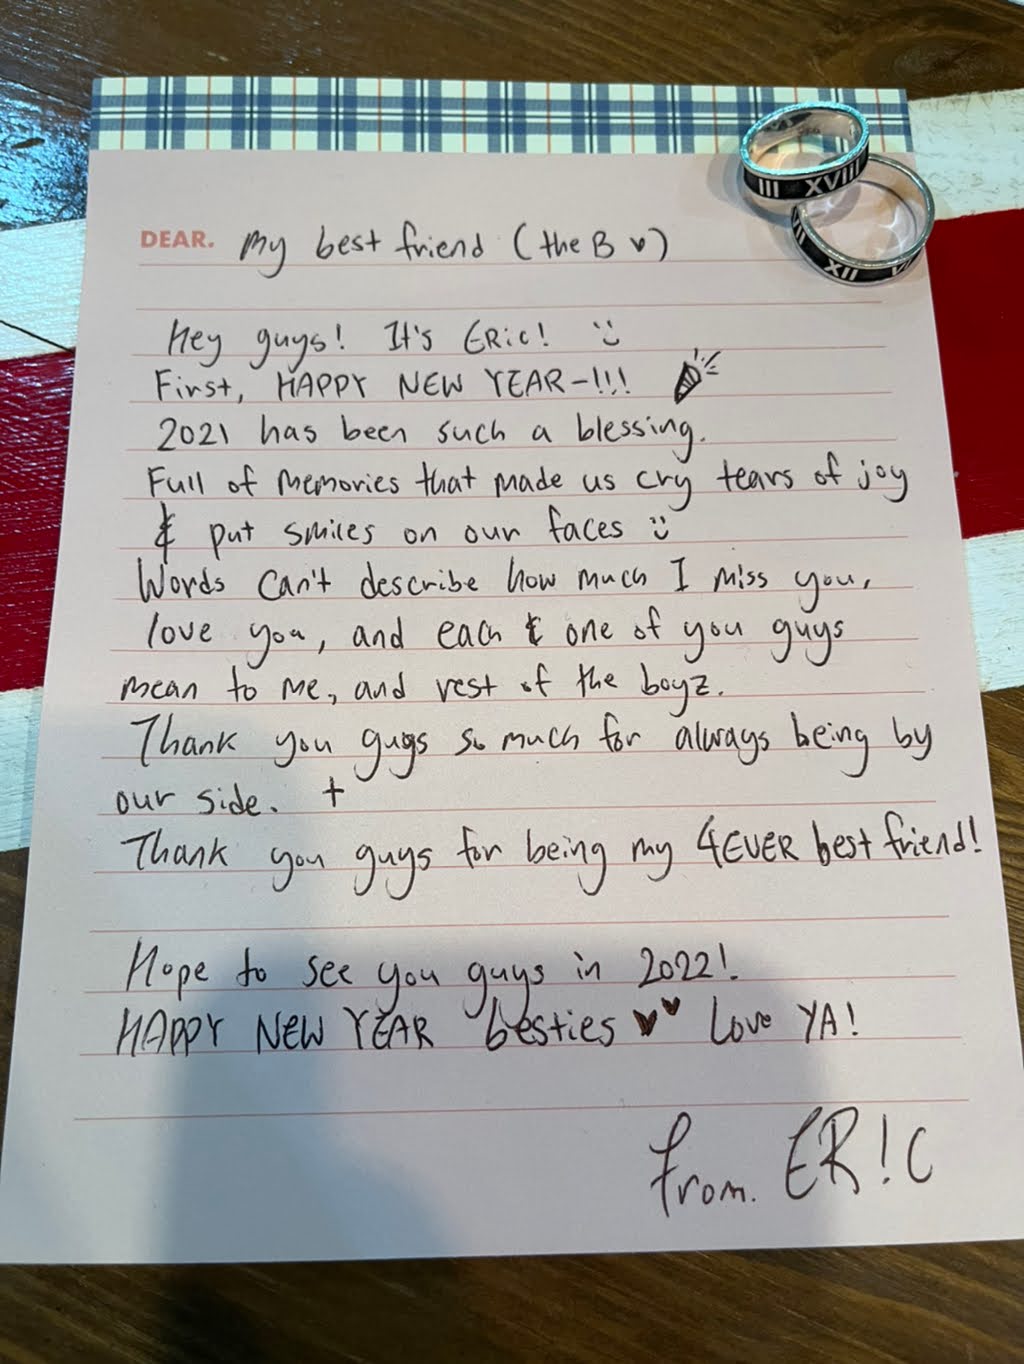 DEAR. My best friend (the B ♥)
Hey guys! It's ERic! :)
First, HAPPY NEW YEAR-!!!
2021 has been such a blessing.
Full of memories that made us cry tears of joy
& put smiles on our faces :)
Words can't describe how much I miss you,
love you, and each & one of you guys
mean to me, and rest of the boyz.
Thank you guys so much for always being by
our side. +
Thank you guys for being my 4EVER best friend!
Hope to see you guys in 2022!
HAPPY NEW YEAR besties ♥♥ Love YA!
From. ER!C
III XVIII
XII